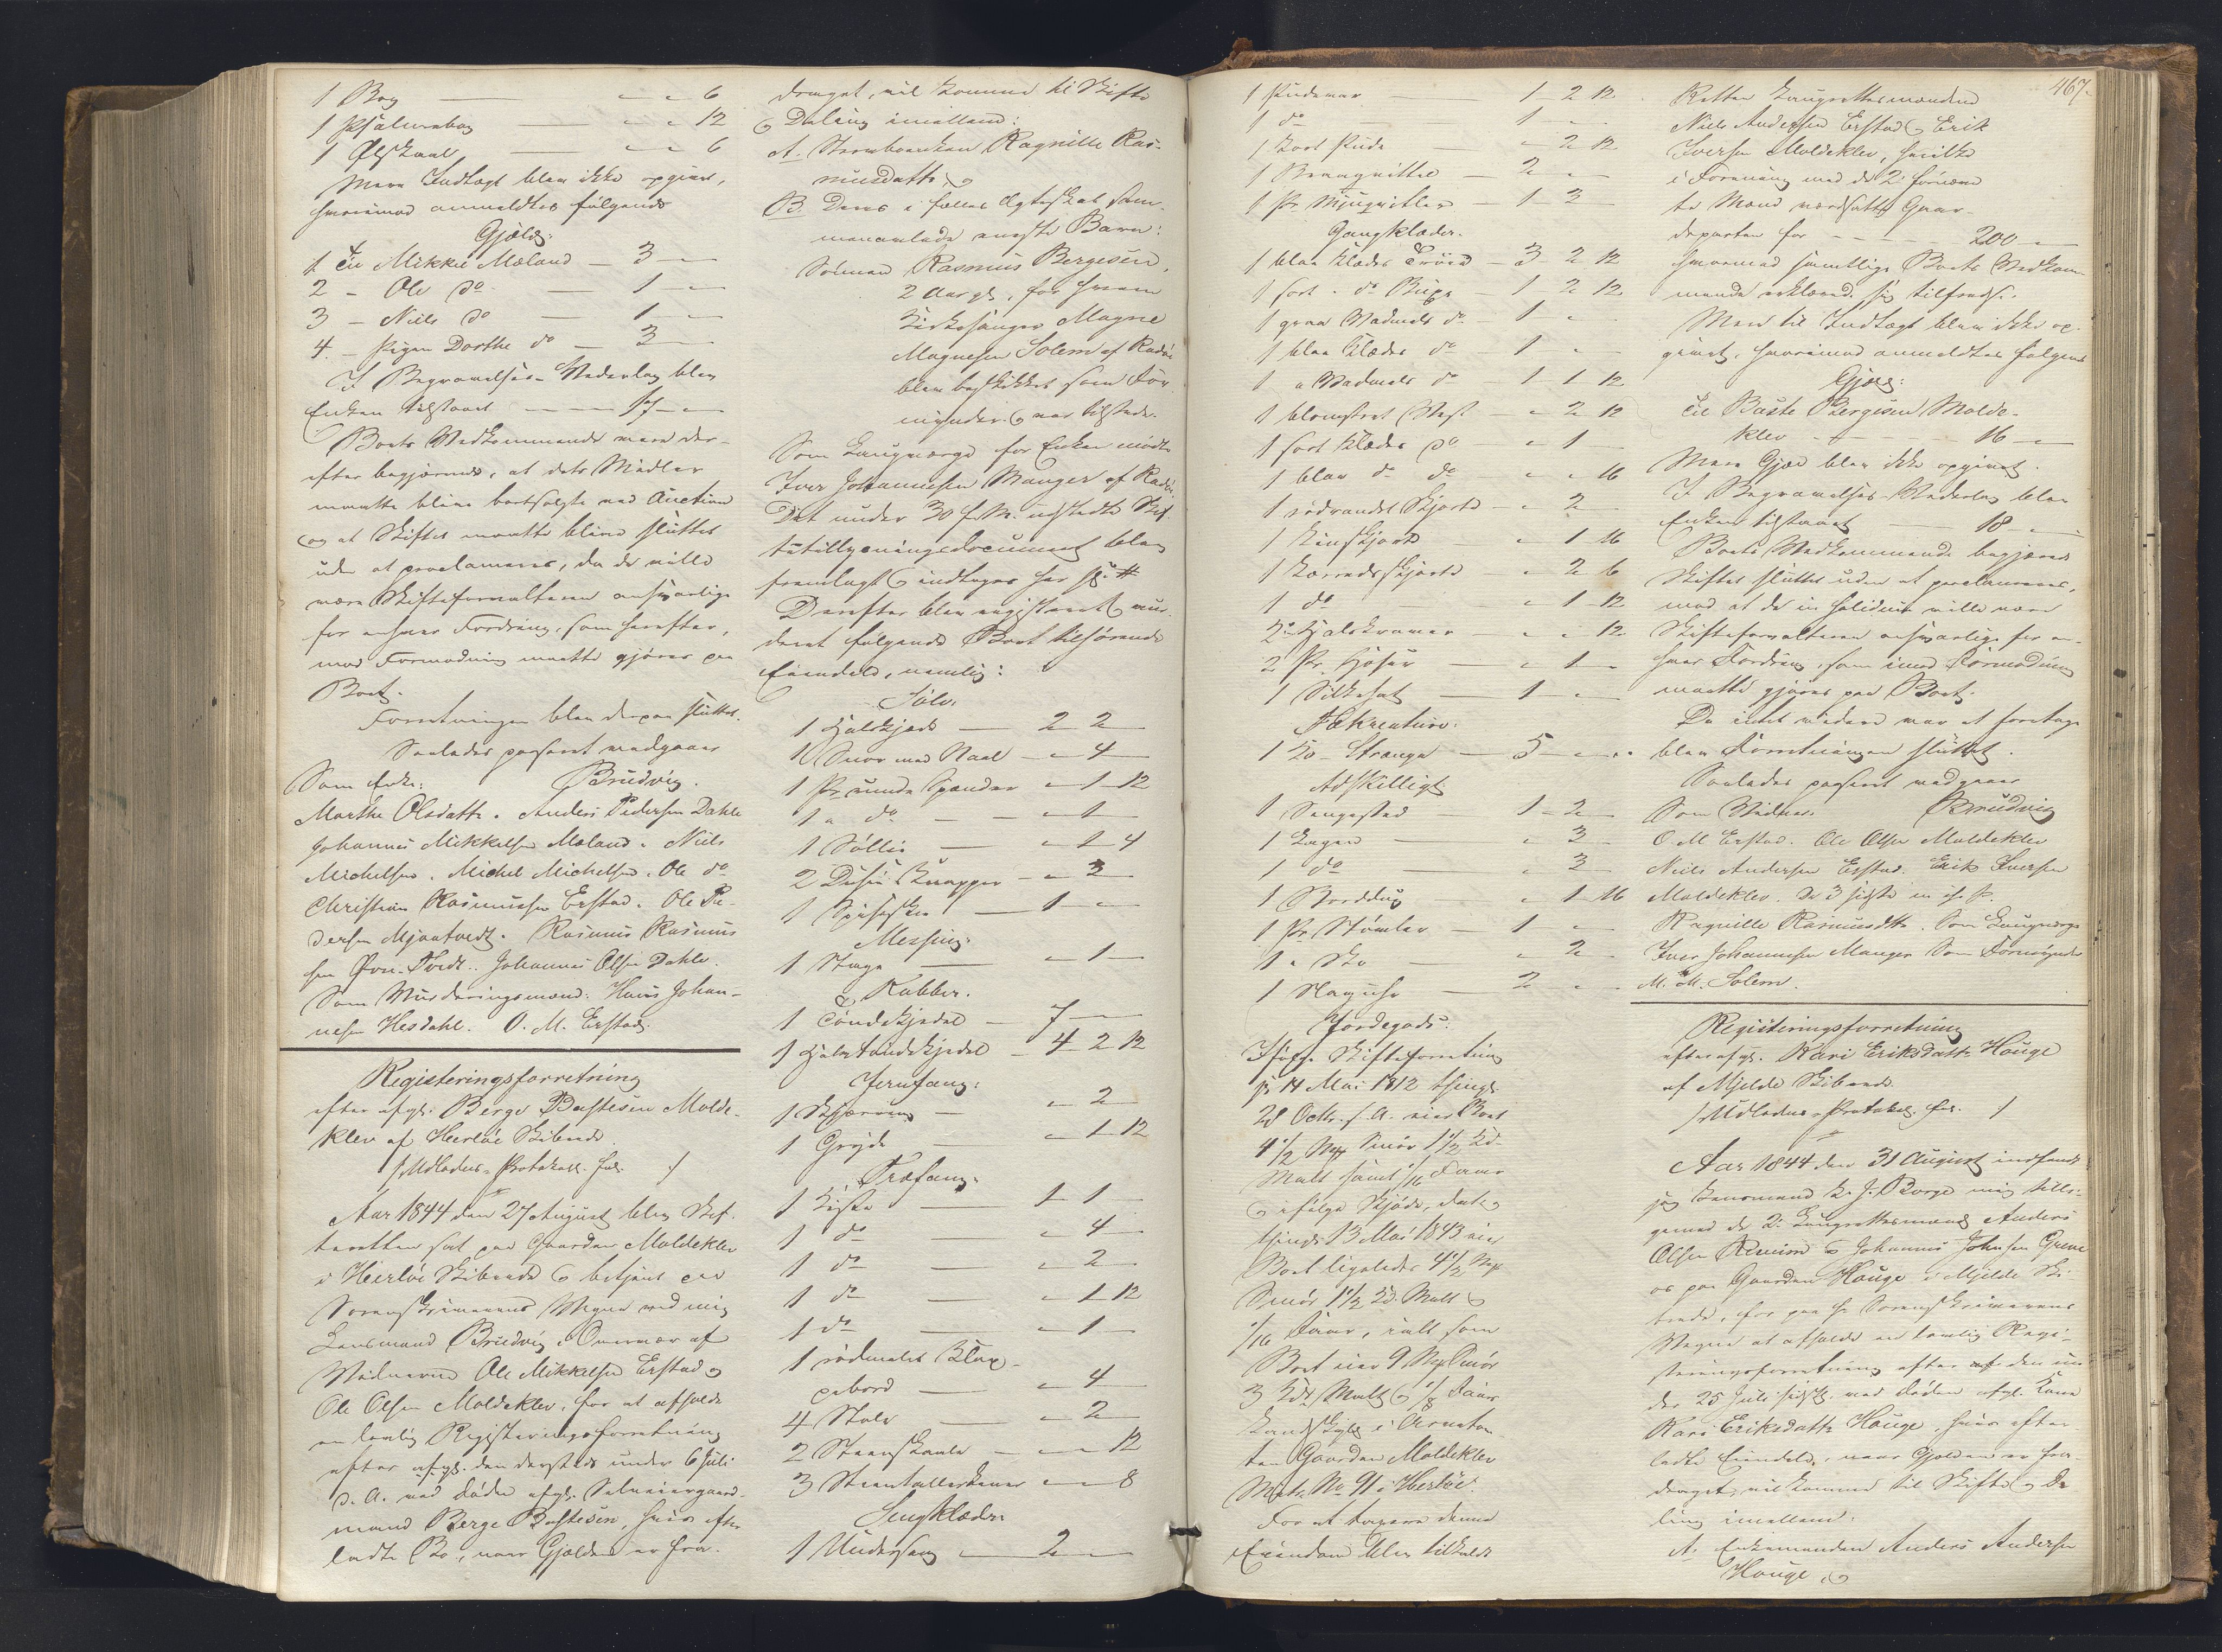 1 Bog — " " 6
1 Psalmebog — " " 12
1 Ølskaal — " " 6
Mere Indtægt blev ikke opgivet,
hvorimod anmeldtes følgende
Gjæld:
1 Til Mikkel Mæland — 3 " "
2 - Ole do — 1 " "
3 - Niels do — 1 " "
4 - Pigen Dorthe do — 3 " "
I Begravelses-Vederlag blev
Enken tilstaaet — 17 " "
Boets Vedkommende vare der-
efter begjærende, at dets Midler
maatte blive bortsolgte ved Auction
og at Skiftet maatte blive sluttet
uden at proclameres, da de ville
være Skifteforvalteren ansvarlige
for enhver Fordring, som herefter,
mod Formodning maatte gjøres paa
Boet.
Forretningen blev derpaa sluttet.
Saaledes passeret vedgaaer
Som Enke: Brudvig.
Marthe Olsdatter. Anders Pedersen Dahle
Johannes Mikkelsen Mæland. Niels
Michelsen. Michel Michelsen. Ole do
Christian Rasmussen Erstad. Ole Pe-
dersen Mjaatvedt. Rasmus Rasmus
sen Øvre-Tvedt. Johannes Olsen Dahle.
Som Vurderingsmænd: Hans Johan-
nesen Hesdahl. O. M. Erstad.
Registeringsforretning
efter afg. Berge Bastesen Molde-
klev af Herløe Skibrede.
/: Udlodns-Protokoll. fol. :/
Aar 1844 den 27 August blev Skif-
teretten sat paa Gaarden Moldeklev
i Herløe Skibrede og betjent paa
Sorenskriverens Vegne ved mig
Lensmand Brudvig i Overvær af
Vidnerne Ole Mikkelsen Erstad og
Ole Olsen Moldeklev, for at afholde
en lovlig Registeringsforretning
efter afg. den dersteds under 6 Juli
d. A. ved Døden afg. Selveiergaard-
mand Berge Bastesen, hvis efter
ladte Bo, naar Gjælden er fra-
draget, vil komme til Skifte
og Deling imellem:
A. Stervboenken Ragnilde Ras-
musdatter, og
B. Deres i fælles Ægteskab sam-
menavlede eneste Barn:
Sønnen Rasmus Bergesen,
2 Aar gl., for hvem
Kirkesanger Magne
Magnesen Solem af Radøe
blev beskikket som For-
mynder og var tilstede.
Som Laugværge for Enken mødte
Iver Johannesen Manger af Radøe.
Det under 30 f. M. udstedte Skif-
tetillysningsdocument blev
fremlagt og indtages her
Derefter blev registeret og vur-
deret følgende Boet tilhørende
Eiendele, nemlig:
Sølv.
1 Halskjæde — 2 2 "
1 Snor med Naal — " 4 "
1 Pr runde Spænder " 1 12
1 " do — " 1 "
1 Søllie — " 1 4
2 Dusin Knapper — " 3 "
1 Spiseskee — 1 " "
Messing.
1 Stage — " 1 "
Kobber.
1 Tøndekjedel — 7 " "
1 Halvtøndekjedel — 4 2 12
Jernfang:
1 — " 2 "
1 Gryde — " 1 12
Træfang.
1 Kiste — 1 1 "
1 do — " 4 "
1 do — " 2 "
1 do — " 1 12
1 do — " 1 "
1 rødmalet Klap-
pebord — " 4 "
4 Stole — " 2 "
2 Steenskaale — " " 12
3 Steentallerkener " " 8
Sengklæder
1 Underseng — 2 " "
1 Pudevar — 1 2 12
1 do — 1 " "
1 kort Pude — " 2 12
1 — 2 " "
1 Pr — 1 3 "
Gangklæder.
1 blaa Klædes Trøie — 3 2 12
1 sort do Buxe — 1 2 12
1 graa Vadmels do — 1 " "
1 blaa Klædes do — 1 " "
1 " Vadmels do — 1 1 12
1 blomstret Vest — " 2 12
1 sort Klædes do — " 1 "
1 blaa do do — " " 16
1 rødrandet Skjorte — " 2 "
1 Skjorte — " 1 16
1 Lærreds Skjorte — " 2 6
1 do — " 1 12
2 Halskraver — " " 12
2 Pr Hoser — " 1 "
1 Silkehat — 1 " "
Fækreature:
1 Ko Strænge — 5 " "
Adskilligt
1 Sengested — 1 2 "
1 Lagen — " 3 "
1 do — " 3 "
1 Borddug — " 1 16
1 Pr Støvler — 1 " "
1 " Sko — " 2 "
1 — 2 " "
Jordegods:
Ifølge Skifteforretning
14 Mai 1812 thingl.
28 Octbr. s. A. eier Boet
4 1/2 Mrk Smør 1 1/2 Kd.
Malt samt 1/16 Faar
og ifølge Skjøde, dat. og
thingl. 13 Mai 1843 eier
Boet ligeledes 4 1/2 Mrk
Smør 1 1/2 Kd. Malt og
1/16 Faar, ialt som
Boet eier 9 Mrk Smør
3 Kd. Malt og 1/8 Faar
Landskyld i
Gaarden Moldeklev
Matr. No 91 i Herløe.
For at taxere denne
Eiendom blev tilkaldt
467.
Retten Laugrettesmændene
Niels Andersen Erstad og Erik
Iversen Moldeklev, hvilke
i Forening med de 2de fornævn
te Mænd værdsatte Gaar-
departen for — 200 "
hvormed samtlige Boets Vedkom-
mende erklærede sig tilfredse.
Mere til Indtægt blev ikke op-
givet, hvorimod anmeldtes følgende
Gjæld:
Til Baste Bergesen Molde-
klev — 16 " "
Mere Gjæld blev ikke opgivet.
I Begravelses-Vederlag blev
Enken tilstaaet — 18 " "
Boets Vedkommende begjærede
Skiftet sluttet uden at proclameres,
mod at de in solidum ville være
Skifteforvalteren ansvarlige for en-
hver Fordring, som imod Formodning
maatte gjøres paa Boet.
Da intet videre var at foretage
blev Forretningen sluttet.
Saaledes passeret vedgaaer
Som Vidner. Brudvig
O. M. Erstad. Ole Olsen Moldeklev
Niels Andersen Erstad. Erik Iversen
Moldeklev. De 3 sidste m. p. P.
Ragnille Rasmusdtr. Som Laugværge
Iver Johannesen Manger Som Formynder
M. M. Solem.
Registeringsforretning
efter afg. Kari Eriksdatter Houge
af Mjelde Skibrede.
/: Udlodns-Protokol. fol. :/
Aar 1844 den 31 August indfandt
jeg Lensmand K. J. Borge mig tilli-
gemed de 2de Laugrettesmænd Anders
Olsen Reviem og Johannes Johnsen Greve
os paa Gaarden Houge i Mjelde Ski-
brede, for paa Hr Sorenskriverens
Vegne at afholde en lovlig Regi-
steringsforretning efter den un-
der 25 Juli sidstl. ved Døden afg. Kone
Kari Eriksdatter Houge, hvis efter-
ladte Eiendele, naar Gjælden er fra-
draget, vil komme til Skifte og De-
ling imellem:
A. Enkemanden Anders Andersen
Houge, og